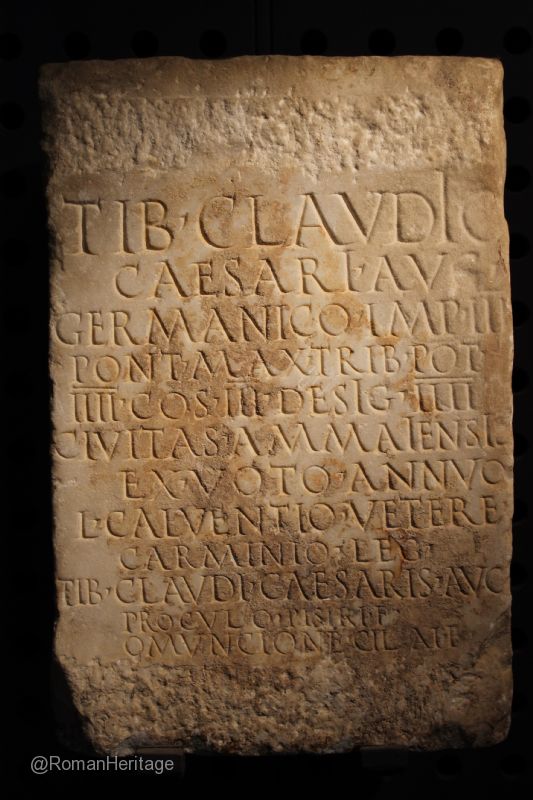 TIB·CLAVDIO
CAESARI·AVG
GERMANICO·IMP·III
PONT·MAX·TRIB·POT
IIII·COS·III·DESIG·IIII
CIVITAS·AMMAIENSIS
EX·VOTO·ANNVO
L·CALVENTIO·VETERE
CARMINIO·LEG
TIB·CLAVDI·CAESARIS·AVG
PROCVLO·PISIRI·F
OMVNCIONE·CILAI·F
@RomanHeritage